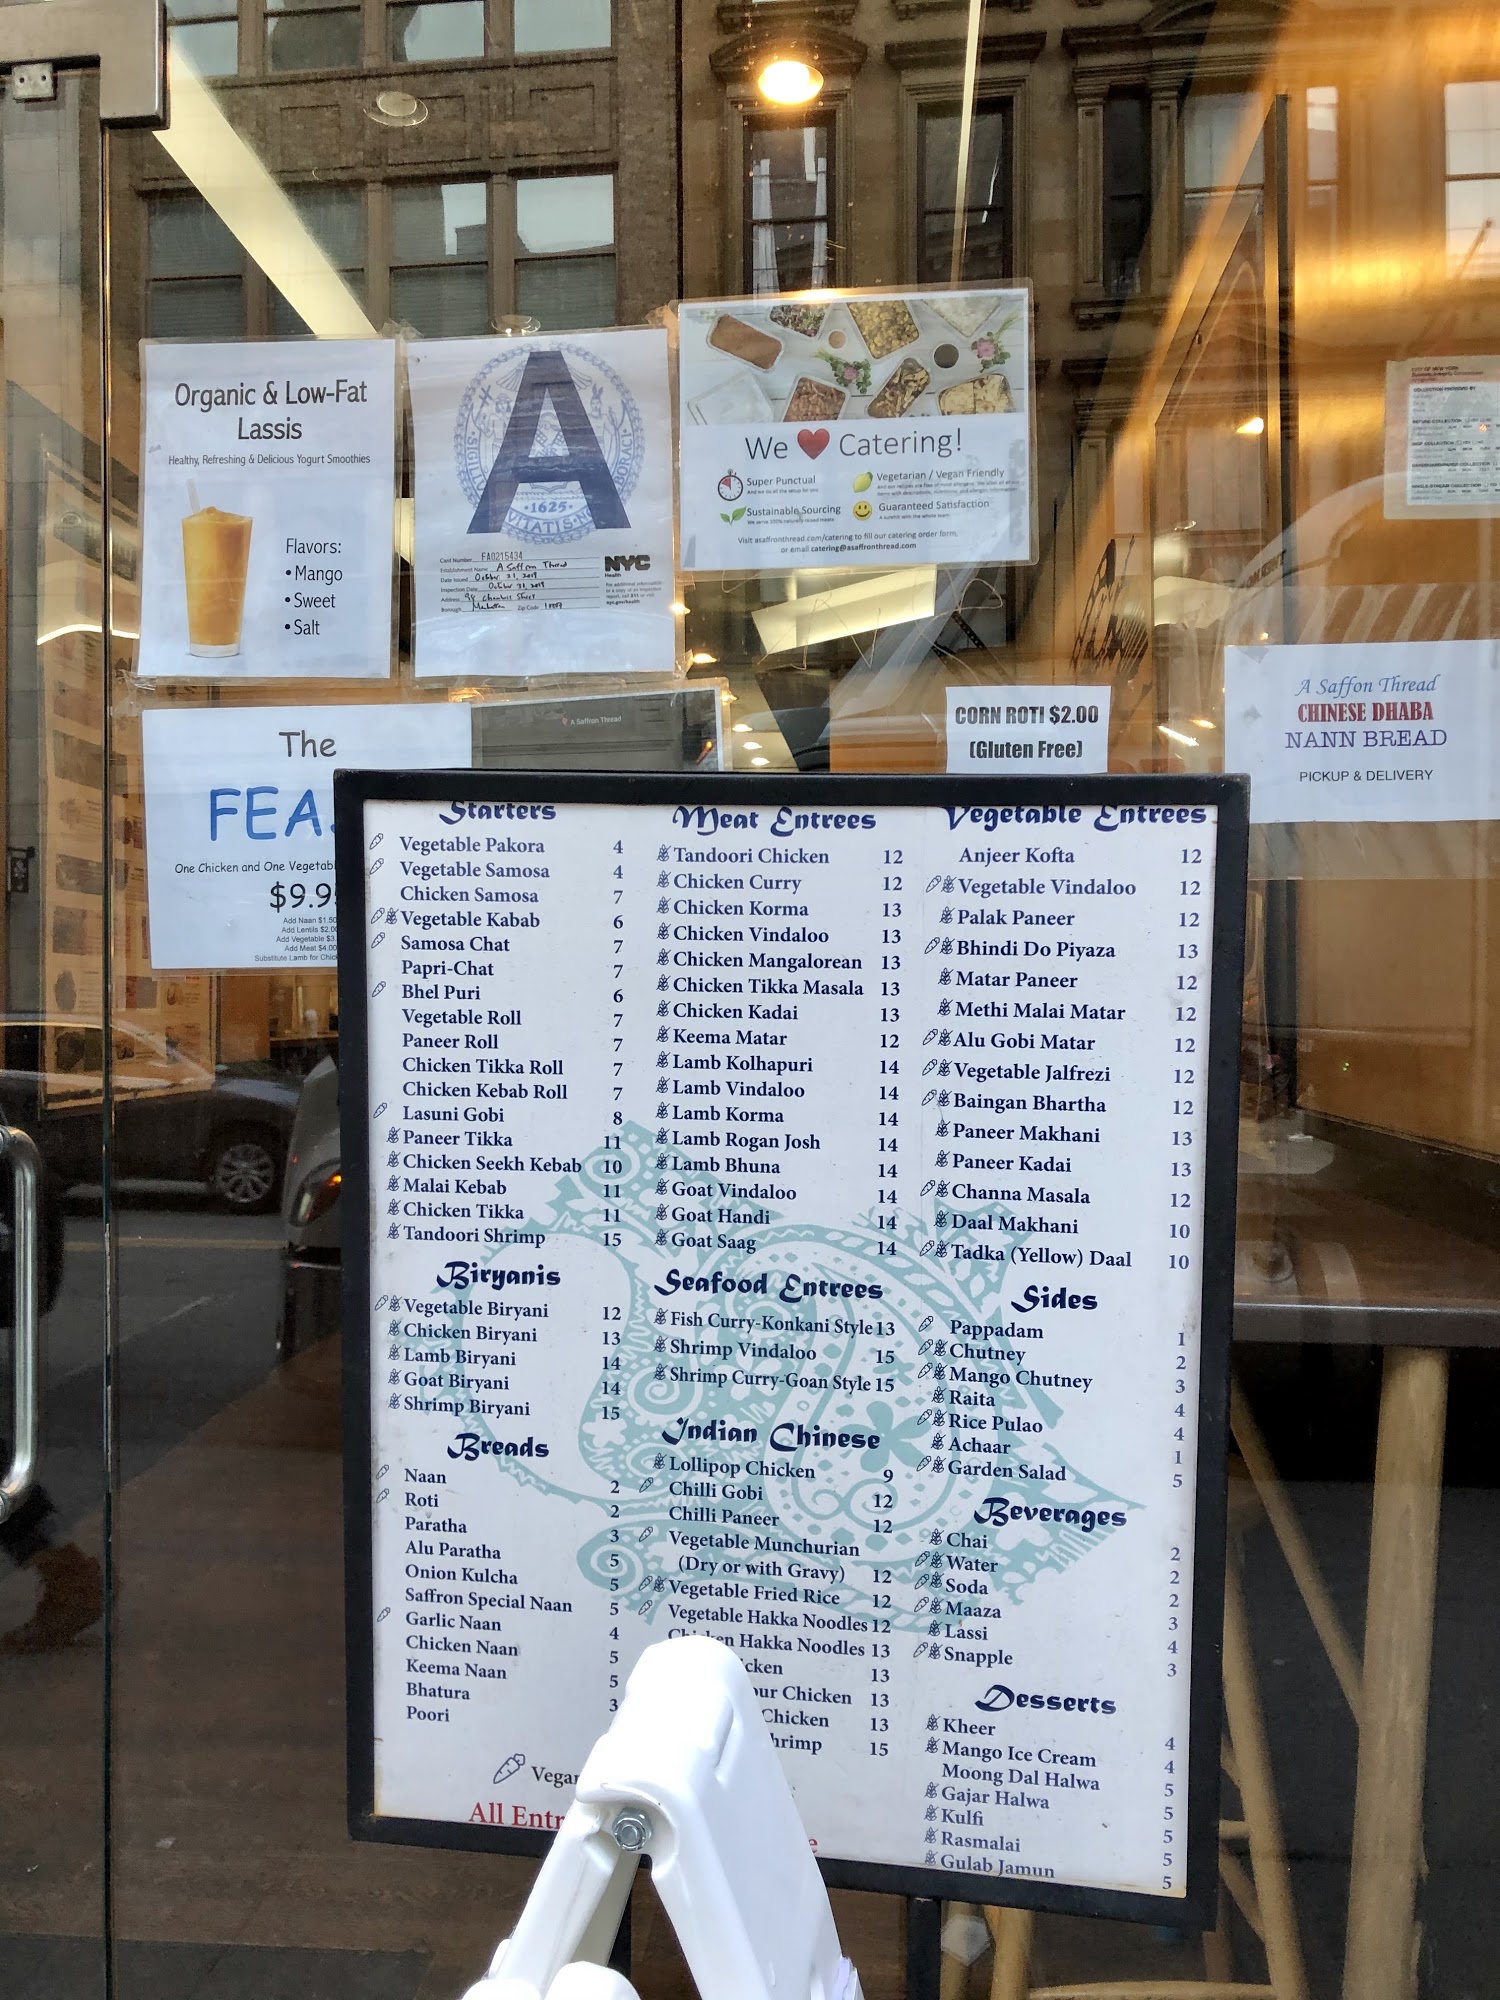 Organic & Low-Fat
Lassis
Healthy, Refreshing & Delicious Yogurt Smoothies
Flavors:
•Mango
•Sweet
•Salt
A
•1625•
Card Number FA0215434
Establishment Name A Saffron Thread
Date Issued October 31, 2019
Inspection Date October 31, 2019
Address 98 Chambers Street
Borough Manhattan Zip Code 10007
NYC
Health
We ♥ Catering!
Super Punctual
And we do all the setup for you
Vegetarian / Vegan Friendly
Sustainable Sourcing
We serve 100% naturally raised meats
Guaranteed Satisfaction
Visit asaffronthread.com/catering to fill our catering order form,
or email catering@asaffronthread.com
A Saffron Thread
CORN ROTI $2.00
(Gluten Free)
A Saffon Thread
CHINESE DHABA
NANN BREAD
PICKUP & DELIVERY
CITY OF NEW YORK
The
FEA
One Chicken and One Vegetabl
$9.9
Add Naan $1.50
Add Lentils $2.0
Add Vegetable $3.
Add Meat $4.00
Substitute Lamb for Chick
Starters
Vegetable Pakora 4
Vegetable Samosa 4
Chicken Samosa 7
Vegetable Kabab 6
Samosa Chat 7
Papri-Chat 7
Bhel Puri 6
Vegetable Roll 7
Paneer Roll 7
Chicken Tikka Roll 7
Chicken Kebab Roll 7
Lasuni Gobi 8
Paneer Tikka 11
Chicken Seekh Kebab 10
Malai Kebab 11
Chicken Tikka 11
Tandoori Shrimp 15
Biryanis
Vegetable Biryani 12
Chicken Biryani 13
Lamb Biryani 14
Goat Biryani 14
Shrimp Biryani 15
Breads
Naan 2
Roti 2
Paratha 3
Alu Paratha 5
Onion Kulcha 5
Saffron Special Naan 5
Garlic Naan 4
Chicken Naan 5
Keema Naan 5
Bhatura 3
Poori
Vegan
All Entr
Meat Entrees
Tandoori Chicken 12
Chicken Curry 12
Chicken Korma 13
Chicken Vindaloo 13
Chicken Mangalorean 13
Chicken Tikka Masala 13
Chicken Kadai 13
Keema Matar 12
Lamb Kolhapuri 14
Lamb Vindaloo 14
Lamb Korma 14
Lamb Rogan Josh 14
Lamb Bhuna 14
Goat Vindaloo 14
Goat Handi 14
Goat Saag 14
Seafood Entrees
Fish Curry-Konkani Style 13
Shrimp Vindaloo 15
Shrimp Curry-Goan Style 15
Indian Chinese
Lollipop Chicken 9
Chilli Gobi 12
Chilli Paneer 12
Vegetable Munchurian
(Dry or with Gravy) 12
Vegetable Fried Rice 12
Vegetable Hakka Noodles 12
Chicken Hakka Noodles 13
cken 13
our Chicken 13
Chicken 13
hrimp 15
Vegetable Entrees
Anjeer Kofta 12
Vegetable Vindaloo 12
Palak Paneer 12
Bhindi Do Piyaza 13
Matar Paneer 12
Methi Malai Matar 12
Alu Gobi Matar 12
Vegetable Jalfrezi 12
Baingan Bhartha 12
Paneer Makhani 13
Paneer Kadai 13
Channa Masala 12
Daal Makhani 10
Tadka (Yellow) Daal 10
Sides
Pappadam 1
Chutney 2
Mango Chutney 3
Raita 4
Rice Pulao 4
Achaar 1
Garden Salad 5
Beverages
Chai 2
Water 2
Soda 2
Maaza 3
Lassi 4
Snapple 3
Desserts
Kheer 4
Mango Ice Cream 4
Moong Dal Halwa 5
Gajar Halwa 5
Kulfi 5
Rasmalai 5
Gulab Jamun 5